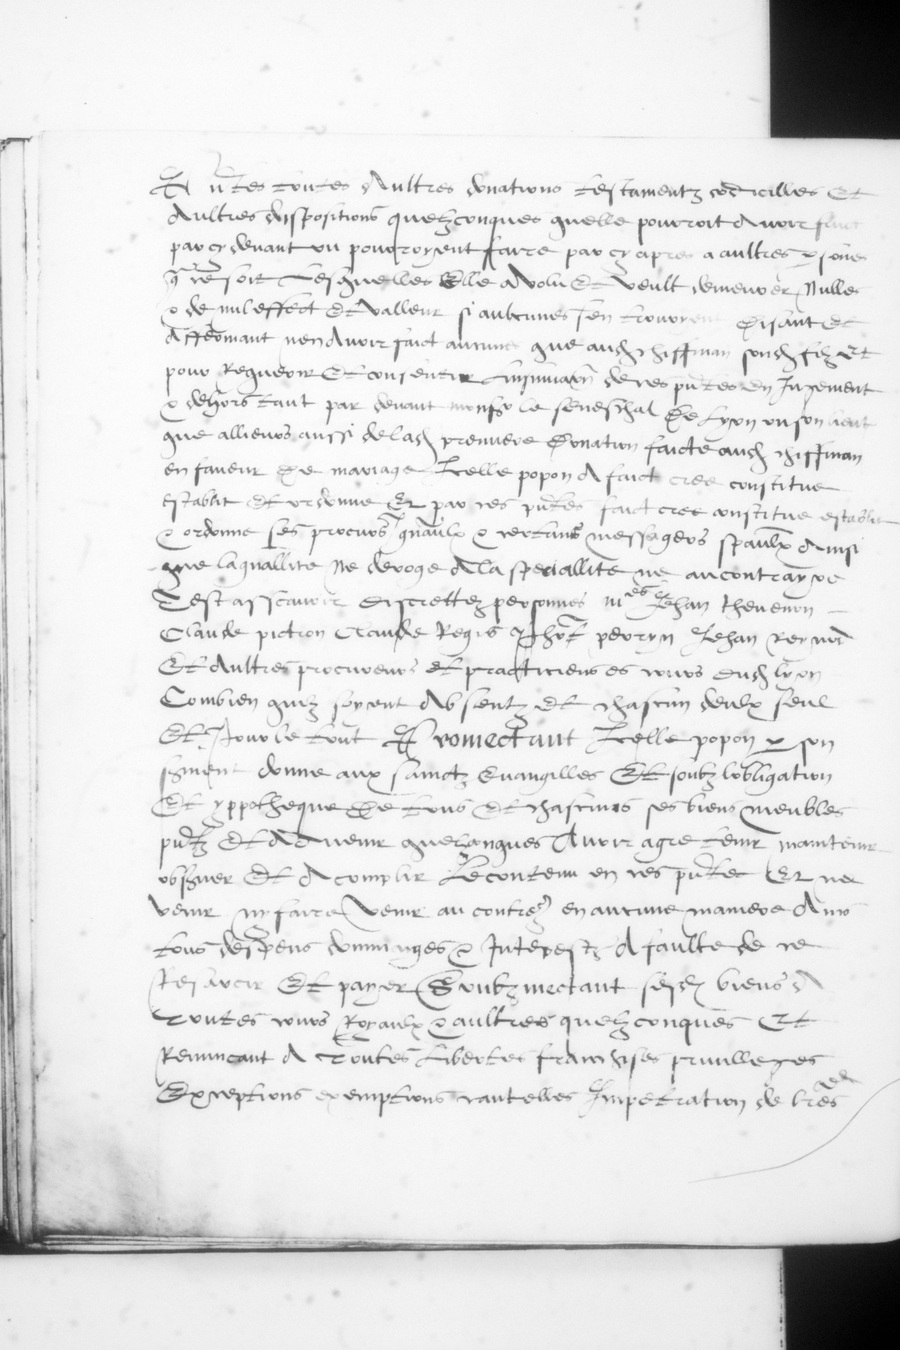 toutes aultres donations testamentz codicilles Et
aultres dispositions quelzconques quelle pourroit avoir faict
par cy devant ou pourroyent faire par cy apres a aultres psones
q ce soit Lesquelles Elle a volu Et veult demeurer Nulles
& de nul effect Et valleur si aulcunes sen trouvoyent Disant Et
Affermant nen avoir faict aucune que aud chiffman sond filz Et
pour Requerir Et consentir Linsinuaon de ces pntes en Jugement
& dehors tant par devant monsr le seneschal De Lyon ou son lieut
que allieurs aussi de lad premiere Donation faicte aud chiffman
en faveur De mariage Icelle popon A faict cree constitue
establit Et ordonne Et par ces pntes faict cree constitue establit
& ordonne ses procurs gnaulx & certains messagers spaulx Ainsi
que la quallite Ne deroge A la speciallite ne au contrayre
Cest asscavoir discrettez personnes mes Jehan thevenon
Claude picton Claude Regis perryn Jehan
Et Aultres procureurs et practiciens es cours dud lyon
Combien quilz soyent Absentz Et chascun deulx seul
Et pour le tout Promectant Icelle popon p son
serment donne aux sainctz Evangilles Et soubz lobligation
Et yppotheque De tous Et chascuns ses biens meubles
pntz Et Advenir quelzconques Avoir agre tenir maintenir
observer Et Acomplir Le contenu en ces pntes Et ne
venir ny faire venir au contre en aucune maniere Ains
tous despens dommages & Interestz A faulte de ce
Resarcir Et payer Soubzmectant sesd biens A
Toutes cours Royaulx & aultres quelzconques Et
Renuncant A Toutes libertes franchises privilleges
Exceptions exemptions cautelles Impetration de lres